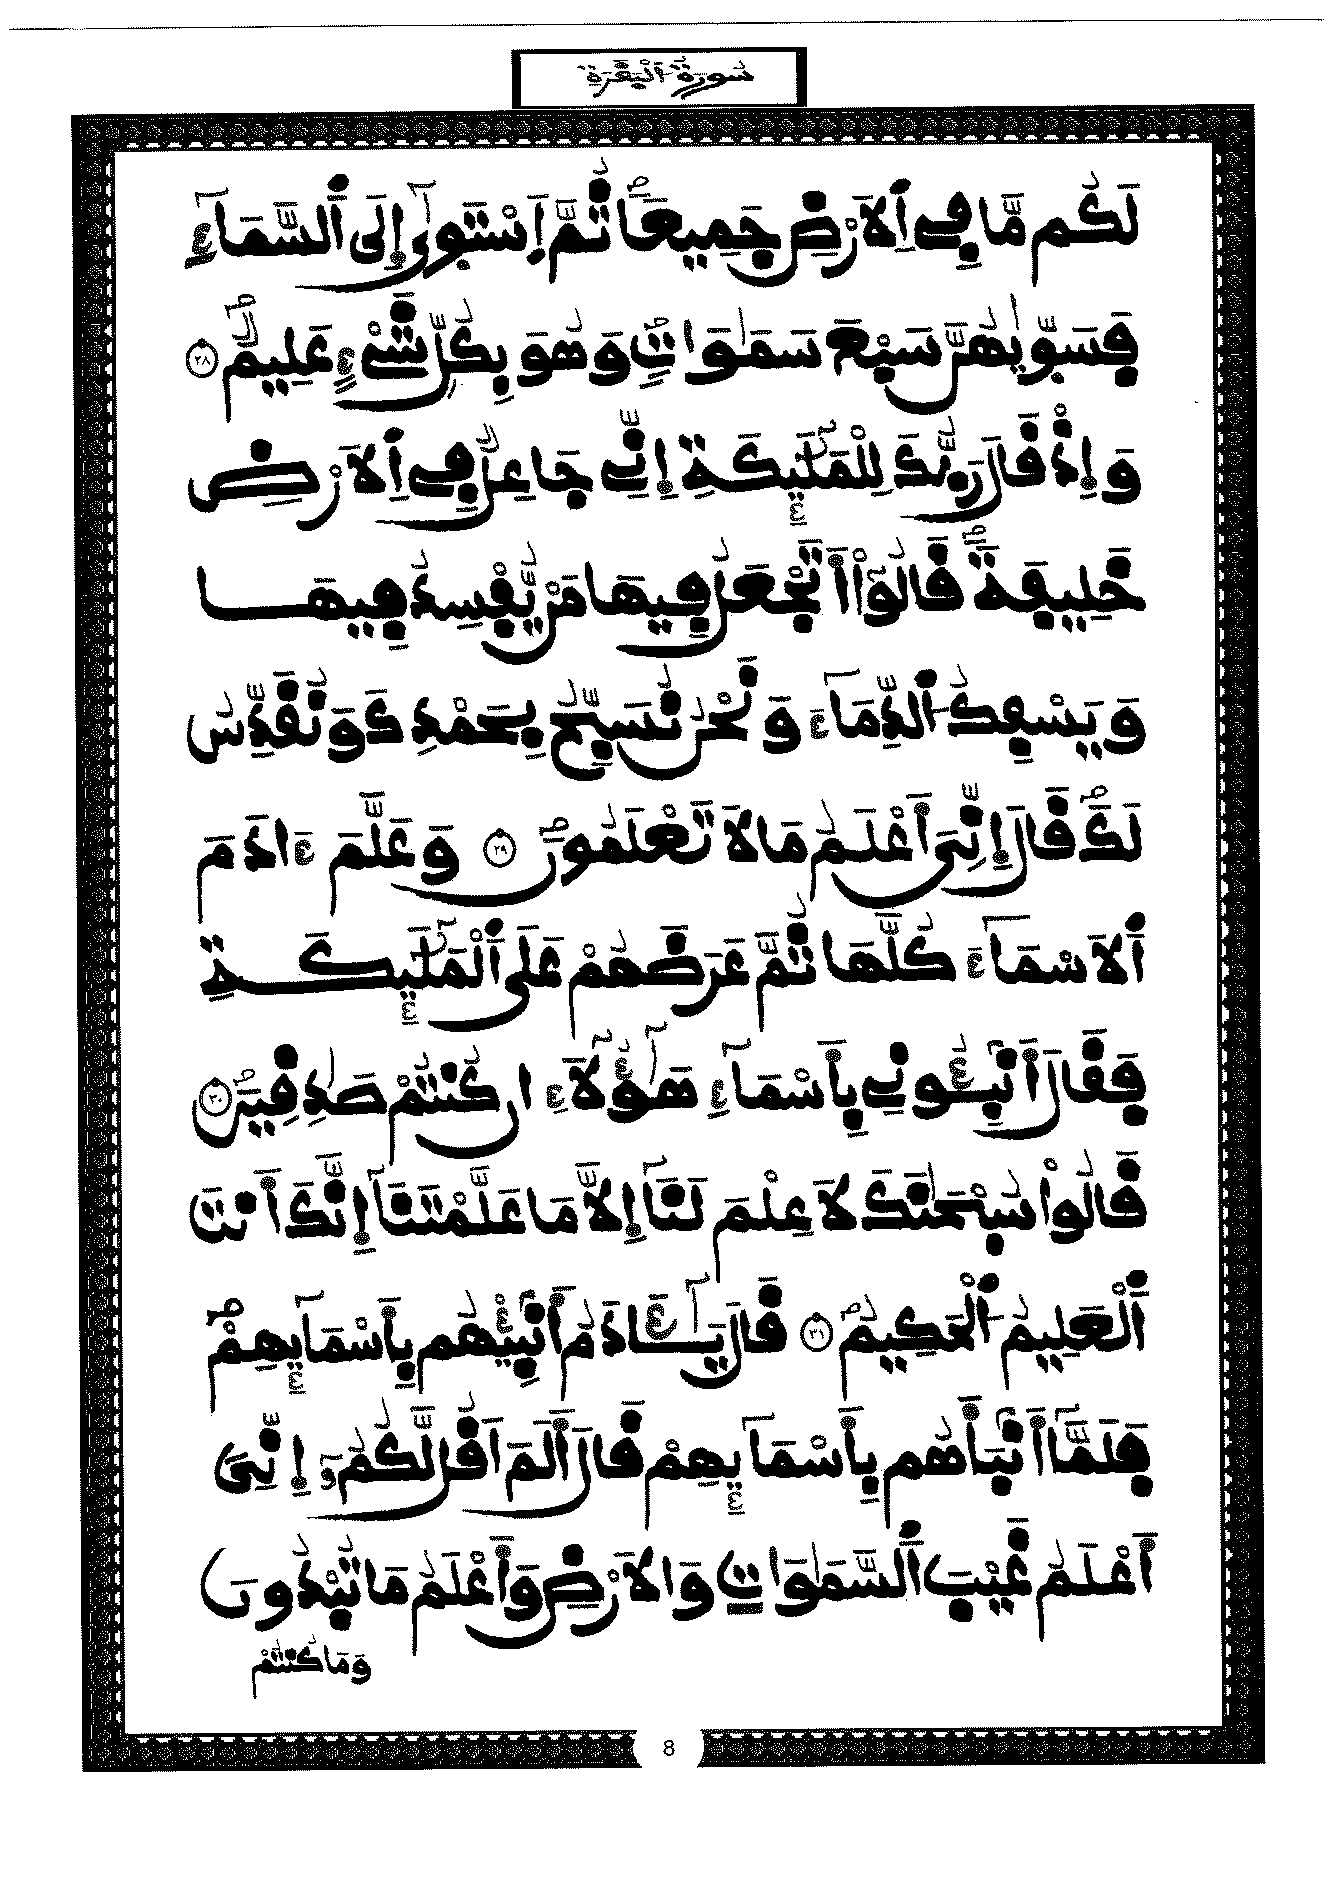 سُورَةُ اَ۬لْبَقَرَةِ
لَكُم مَّا فِے اِ۬لَارْضِ جَمِيعاٗ ثُمَّ اَ۪سْتَو۪ىٰٓ إِلَى اَ۬لسَّمَآءِ
فَسَوّ۪يٰهُنَّ سَبْعَ سَمَٰوَاتٖۖ وَهُوَ بِكُلِّ شَےْءٍ عَلِيمٞۖ ٢٨
وَإِذْ قَالَ رَبُّكَ لِلْمَلَٰٓئِكَةِ إِنِّے جَاعِلٞ فِے اِ۬لَارْضِ
خَلِيفَةٗۖ قَالُوٓاْ أَتَجْعَلُ فِيهَا مَنْ يُّفْسِدُ فِيهَا
وَيَسْفِكُ اُ۬لدِّمَآءَ وَنَحْنُ نُسَبِّحُ بِحَمْدِكَ وَنُقَدِّسُ
لَكَۖ قَالَ إِنِّيَ أَعْلَمُ مَا لَا تَعْلَمُونَۖ ٢٩ وَعَلَّمَ ءَادَمَ
اَ۬لَاسْمَآءَ كُلَّهَا ثُمَّ عَرَضَهُمْ عَلَى اَ۬لْمَلَٰٓئِكَةِ
فَقَالَ أَنۢبِـُٔونِے بِأَسْمَآءِ هَٰٓؤُلَآءِ ان كُنتُمْ صَٰدِقِينَۖ ٣٠
قَالُواْ سُبْحَٰنَكَ لَا عِلْمَ لَنَآ إِلَّا مَا عَلَّمْتَنَآ إِنَّكَ أَنتَ
اَ۬لْعَلِيمُ اُ۬لْحَكِيمُۖ ٣١ قَالَ يَٰٓـَٔادَمُ أَنۢبِئْهُم بِأَسْمَآئِهِمْۖ
فَلَمَّآ أَنۢبَأَهُم بِأَسْمَآئِهِمْ قَالَ أَلَمَ اَقُل لَّكُمُۥٓ إِنِّيَ
أَعْلَمُ غَيْبَ اَ۬لسَّمَٰوَاتِ وَالَارْضِ وَأَعْلَمُ مَا تُبْدُونَ
وَمَا كُنتُمْ
8